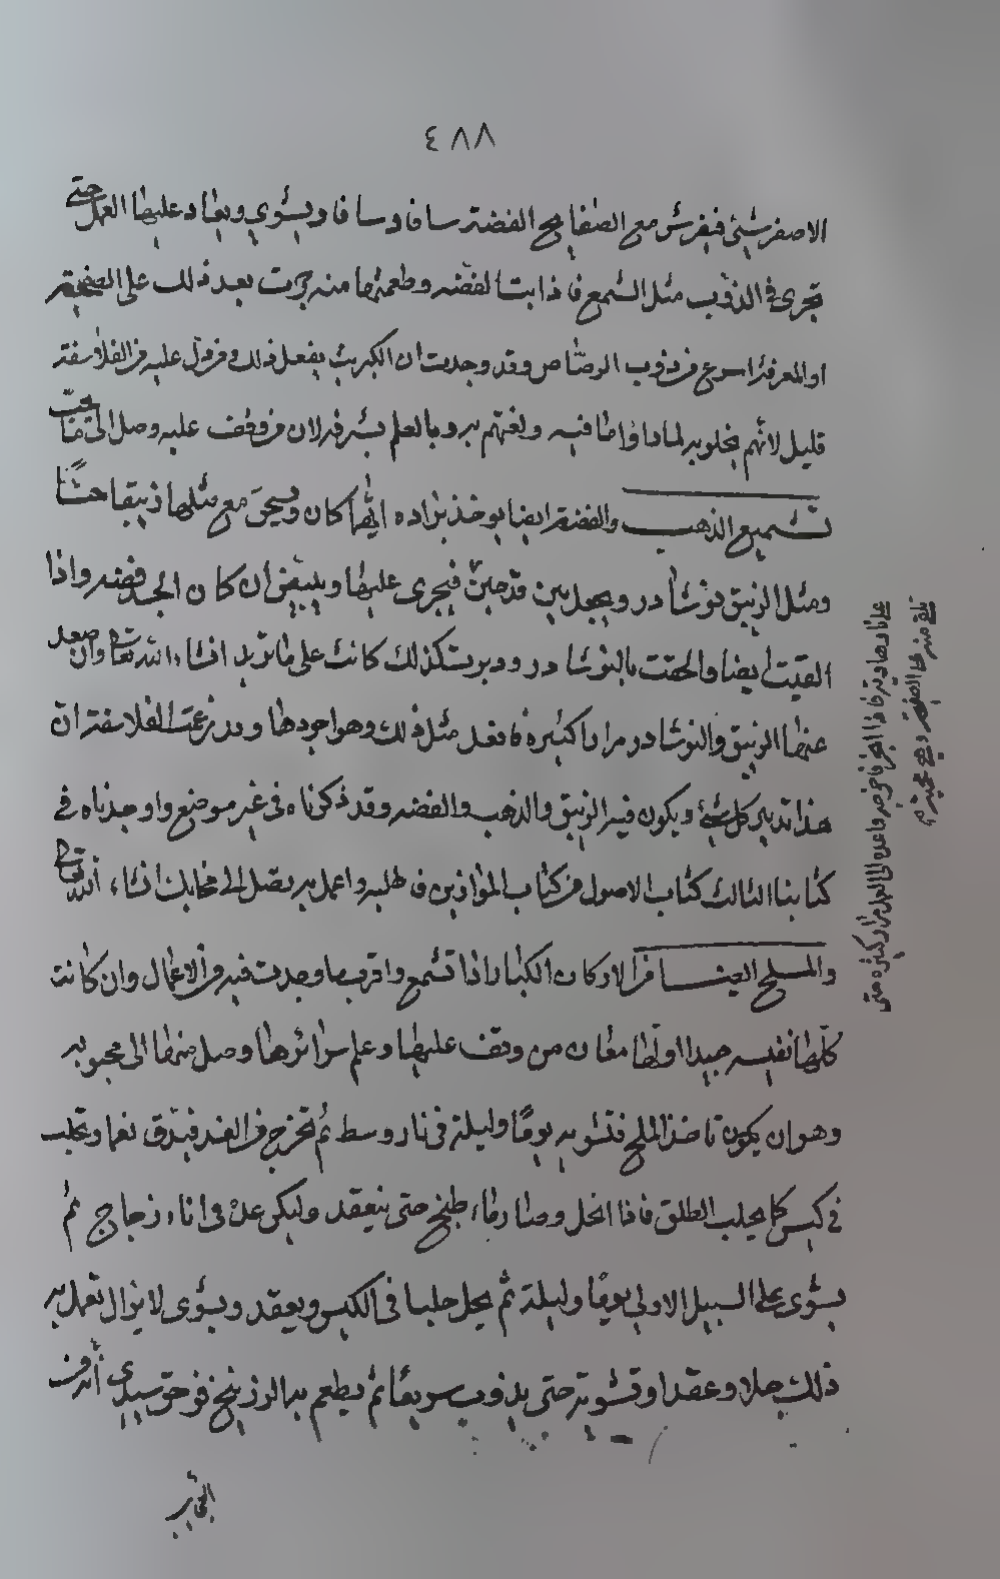 ٤٨٨
الاصفر شيئى فيفرش مع الصفايح الفضة سافا وسافا ويشوي ويعاد عليها العمل حتى
تجرى فى الذوب مثل الشمع فاذا ذابت الفضه وطعمتها منه جرت بعد ذلك على الصفيحة
او المغرفة اسرع من ذوب الرصاص وقد وجدت ان الكبريت يفعل ذلك ومن دل عليه من الفلاسفة
قليل لانهم بخلو به لما راوا ما فيه بالعلم بشرفه لان من وقف عليه وصل الى ما يحب
تشميع الذهب والفضة ايضا يوخذ براده ايهما كان ويسحق مع مثلها زيبقا
ومثل الزيبق نوشادر ويجعل بين قدحين فيجرى عليها ويبيض ان كان الجسد فضه واذا
القيت ايضا والحقت بالنوشادر ودبرت كذلك كانت على ما تريد انشاء الله تعالى وان صعد
عنها الزيبق والنوشادر مرارا كثيرة فافعل مثل ذلك وهو اجودها وقد زعمت الفلاسفة ان
هذا تدبير كل شيئ ويكون فيه الزيبق والذهب والفضه وقد ذكرناه فى غير موضع واوجدناه فى
كتابنا الثالث كتاب الاصول من كتاب الموازين فاطلبه واعمل به تصل الى محابك انشاء الله تعالى
والملح ايضا من الاركان الكبار اذا تشمع واقرب ما وجدت فيه من الاعمال وان كانت
كلها نفيسه جيدا اولها معان من وقف عليها وعلم سرائرها وصل منها الى محبوبه
وهو ان يكون تاخذ الملح فتشويه يوما وليلة فى نار وسط ثم تخرج من الغد فيدق نعما ويحلب
فى كيس كما يحلب الطلق فاذا انحل وصار ماء طبخ حتى ينعقد وليكن عقده فى اناء زجاج ثم
يشوى على السبيل الاولى يوما وليلة ثم يحل حلبا فى الكيس ويعقد ويشوى لا يزال تعمل به
ذلك حلا وعقدا وتشوية حتى يذوب سريعا ثم يطعم به الزرنيخ فوحق سيدى انه من